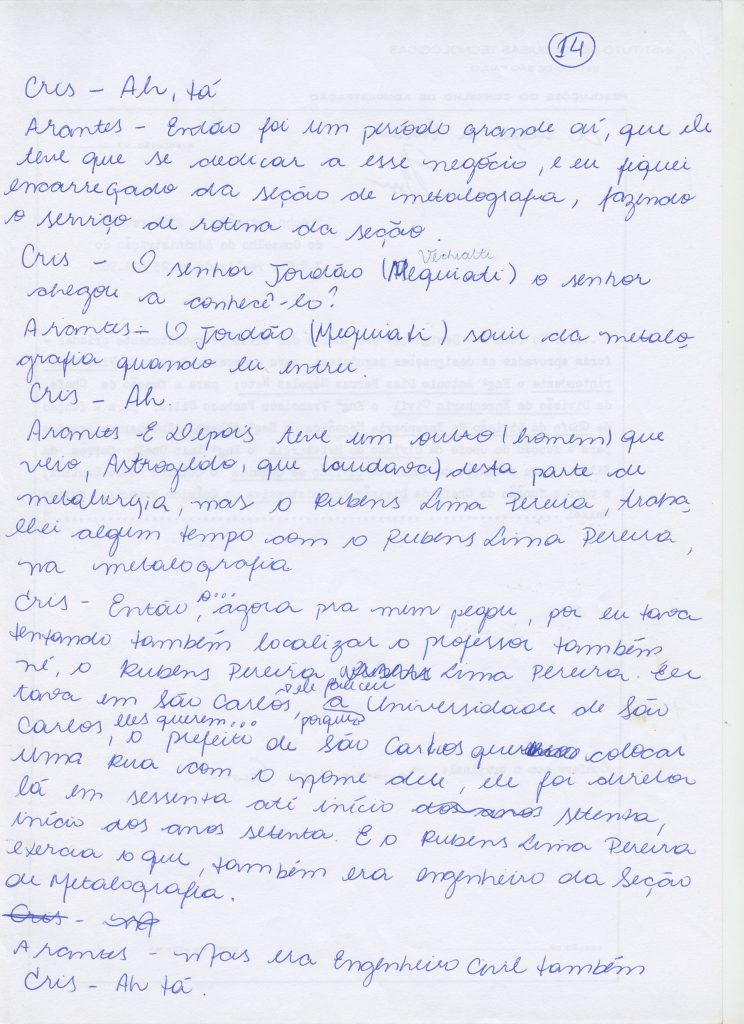 14
Cris - Ah, tá
Arantes - Então foi um período grande aí, que ele
teve que se dedicar a esse negócio, e eu fiquei
encarregado da seção de metalografia, fazendo
o serviço de rotina da seção.
Vechialti
Cris - O senhor Jordão (Mequiati) o senhor
chegou a conhecê-lo?
Arantes - O Jordão (Mequiati) saiu da metalo
grafia quando eu entrei.
Cris - Ah.
Arantes - E Depois teve um outro (homem) que
veio, Astrogildo, que (cuidava) desta parte de
metalurgia, mas o Rubens Lima Pereira, traba
lhei algum tempo com o Rubens Lima Pereira,
na metalografia
Cris - Então, o... agora pra mim pegou, por eu tava
tentando também localizar o professor também
né, o Rubens Pereira, Rubens Lima Pereira. Eu
tava em São Carlos, ele faleceu a Universidade de São
Carlos, eles querem... porque o prefeito de São Carlos quer colocar
uma Rua com o nome dele, ele foi diretor
lá em sessenta até início dos anos setenta,
início dos anos setenta. E o Rubens Lima Pereira
exercia o que, também era engenheiro da Seção
de Metalografia.
Cris -
Arantes - Mas era Engenheiro Civil também
Cris - Ah tá.